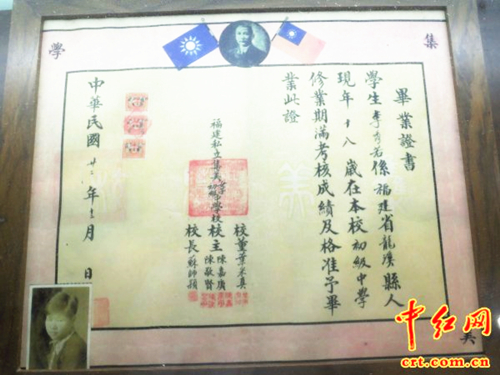 集
學
畢業證書
學生李 若係福建省龍溪縣人
現年十八歲在本校初級中學
修業期滿考核成績及格准予畢
業此證
福建私立集美初級中學校
校董葉
校主陳嘉庚
陳敬賢
校長蘇師穎
中華民國廿 年 月 日
美
中红网
crt.com.cn